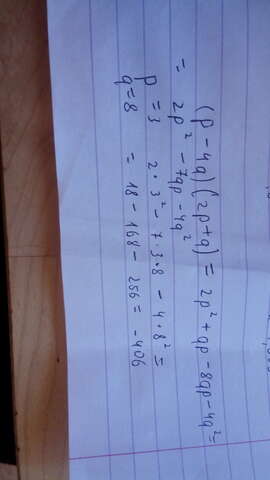 (p - 4q)(2p+q) = 2p² + qp - 8qp - 4q² =
= 2p² - 7qp - 4q²
p = 3 2·3² - 7·3·8 - 4·8² =
q=8 = 18 - 168 - 256 = -406